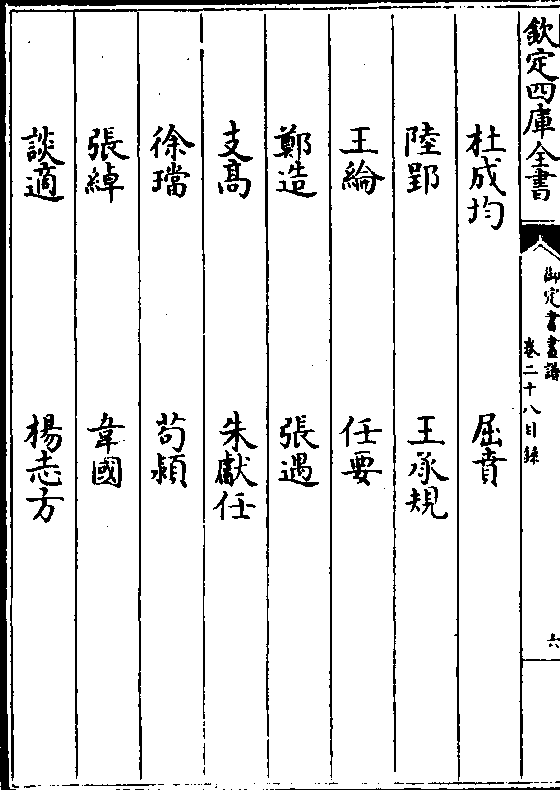 欽定四庫全書
御定書畫譜
卷二十八目錄
六
杜成均 屈賁
陸郢 王承規
王綸 任要
鄭造 張遇
支高 朱獻任
徐璫 苟潁
張綽 韋國
談適 楊志方